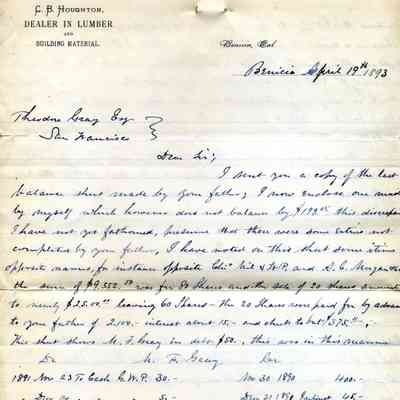 C. B. Houghton,
DEALER IN LUMBER
AND
BUILDING MATERIAL.
Benicia, Cal.
Benicia April 19th 1893
Theodore Gray Esq
San Francisco
Dear Sir;
I sent you a copy of the last
balance sheet made by your father; I now enclose one made
by myself which however does not balance by $199.00 this discrepan
I have not yet fathomed, presume that there were some entries not
completed by your father, I have noted on this sheet some items
opposite names, for instance opposite & W.P. and S. C.
the sum of $9,552.50 was for 80 Shares and the sale of 20 shares amount
to nearly $25.00 leaving 60 Shares - the 20 Shares were paid for by advance
to your father of 2,100.- interest about 15.- and check to bal $375.00.
This sheet shows N. F. Gray in debt $50., this was in this manner
Dr N. F. Gray Cr
1891 Nov 23 To Cash C.W.P. 30.- Nov 30 1890 400.-
5.- Dec 31 1890 45.-